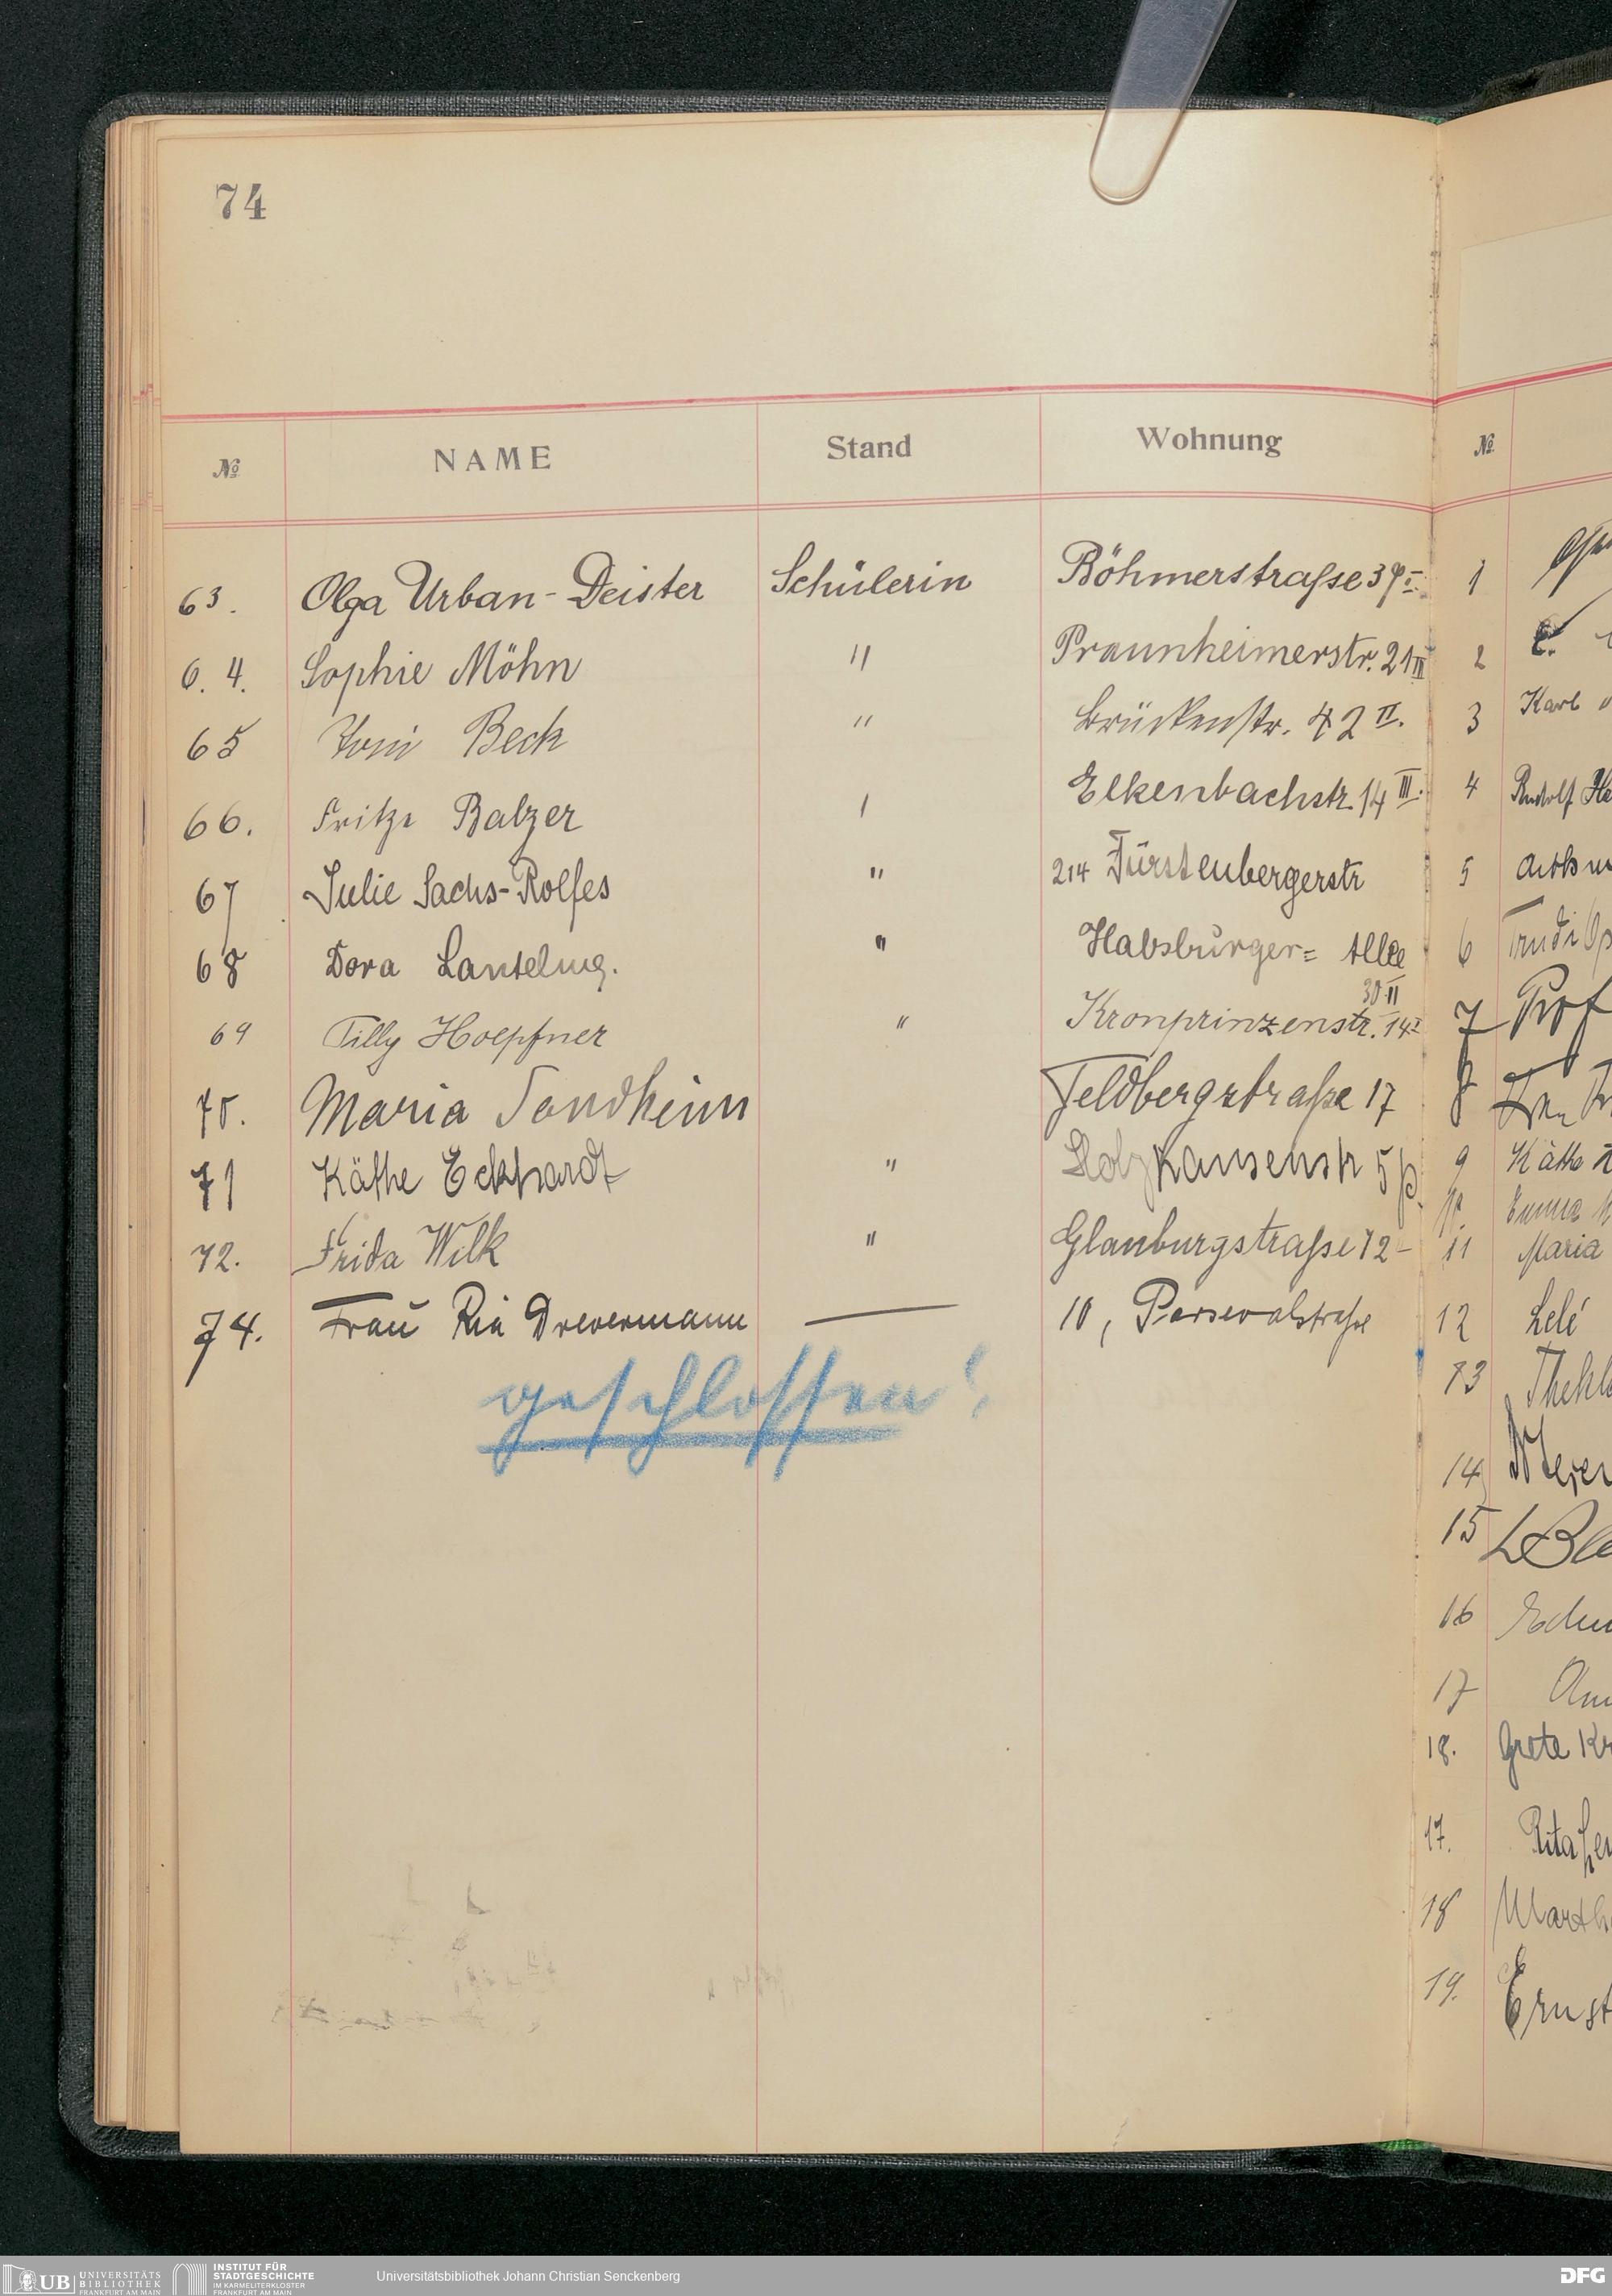 74
№ NAME Stand Wohnung №
63. Olga Urban-Deister Schülerin Böhmerstraße
6.4. Sophie Möhn " Praunheimerstr. 21 III
65 Toni Beck " Brückenstr. 42 II.
66. Fritze Balzer ' Elkenbachstr. 14 III.
67 Julie Sachs-Rolfes " 214 Fürstenbergerstr
68 Dora " Habsburger= Allee
30 II
69 Tilly Hoepfner " Kronprinzenstr. 14 I
70. Maria Sondheim Feldbergstraße 17
71 Käthe Eckhardt " Holzhausenstr 5 p.
72. Frida Wilk " Glauburgstraße 72
74. Frau Ria Drevermann — 10, Parsevalstraße
geschlossen!
1
2 E.
3 Karl
4 Rudolf He
5
6 Trudi Op
7 Prof
8
9 Käthe
10. Emma
11 Maria
12
13 Thekla
14 Meier
15
16
17
18. Grete Kr
17. Rita
18 Marth
19. Ernst
UB UNIVERSITÄTS
BIBLIOTHEK
FRANKFURT AM MAIN
INSTITUT FÜR
STADTGESCHICHTE
IM KARMELITERKLOSTER
FRANKFURT AM MAIN
Universitätsbibliothek Johann Christian Senckenberg
DFG